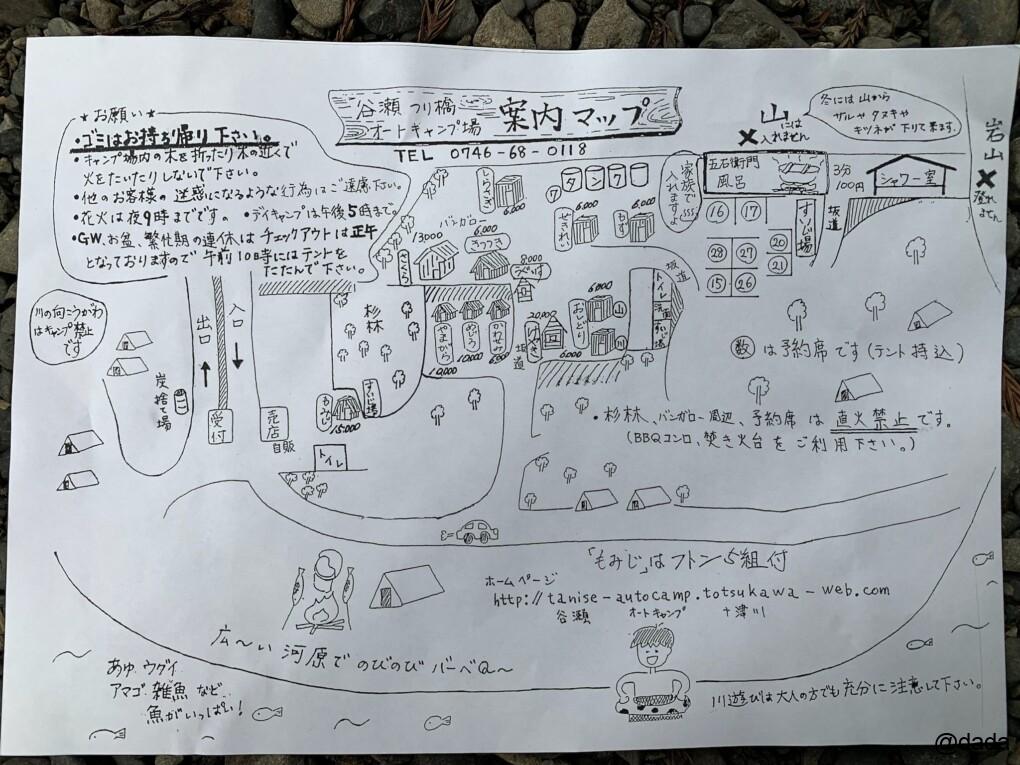 谷瀬つり橋
オートキャンプ場
案内マップ
TEL 0746-68-0118
★お願い★
・ゴミはお持ち帰り下さい。
・キャンプ場内の木を折ったり木の近くで
火をたいたりしないで下さい。
・他のお客様の迷惑になるような行為はご遠慮下さい。
・花火は夜9時までです。・デイキャンプは午後5時まで。
・GW、お盆、繁忙期の連休はチェックアウトは正午
となっておりますので午前10時にはテントを
たたんで下さい。
山には
✖入れません
冬には山から
サルやタヌキや
キツネが下りて来ます。
岩山
✖登れません
家族で
入れますよ
五右衛門
風呂
3分
100円
シャワー室
坂道
すいじ場
⑯ ⑰
㉘ ㉗ ⑳
㉑
⑮ ㉖
ワタンプ
6,000
せきれい
6,000
もず
6,000
バンガロー
13,000
6,000
きつつき
8,000
うぐいす
坂道
トイレ
すいじ場
6,000
おしどり
山
川
6,000
20,000
けやき
坂道
やまがら
10,000
10,000
かわせみ
6,000
杉林
もみじ
15,000
すいじ場
トイレ
川の向こうがわ
はキャンプ禁止
です
出口
入口
炭捨て場
受付
売店
自販
数は予約席です(テント持込)
・杉林、バンガロー周辺、予約席は直火禁止です。
(BBQコンロ、焚き火台をご利用下さい。)
「もみじ」はフトン5組付
ホームページ
http://tanise-autocamp.totsukawa-web.com
谷瀬 オートキャンプ 十津川
広〜い河原でのびのびバーベQ〜
あゆ、ウグイ
アマゴ、雑魚など
魚がいっぱい!
川遊びは大人の方でも充分に注意して下さい。
@dada